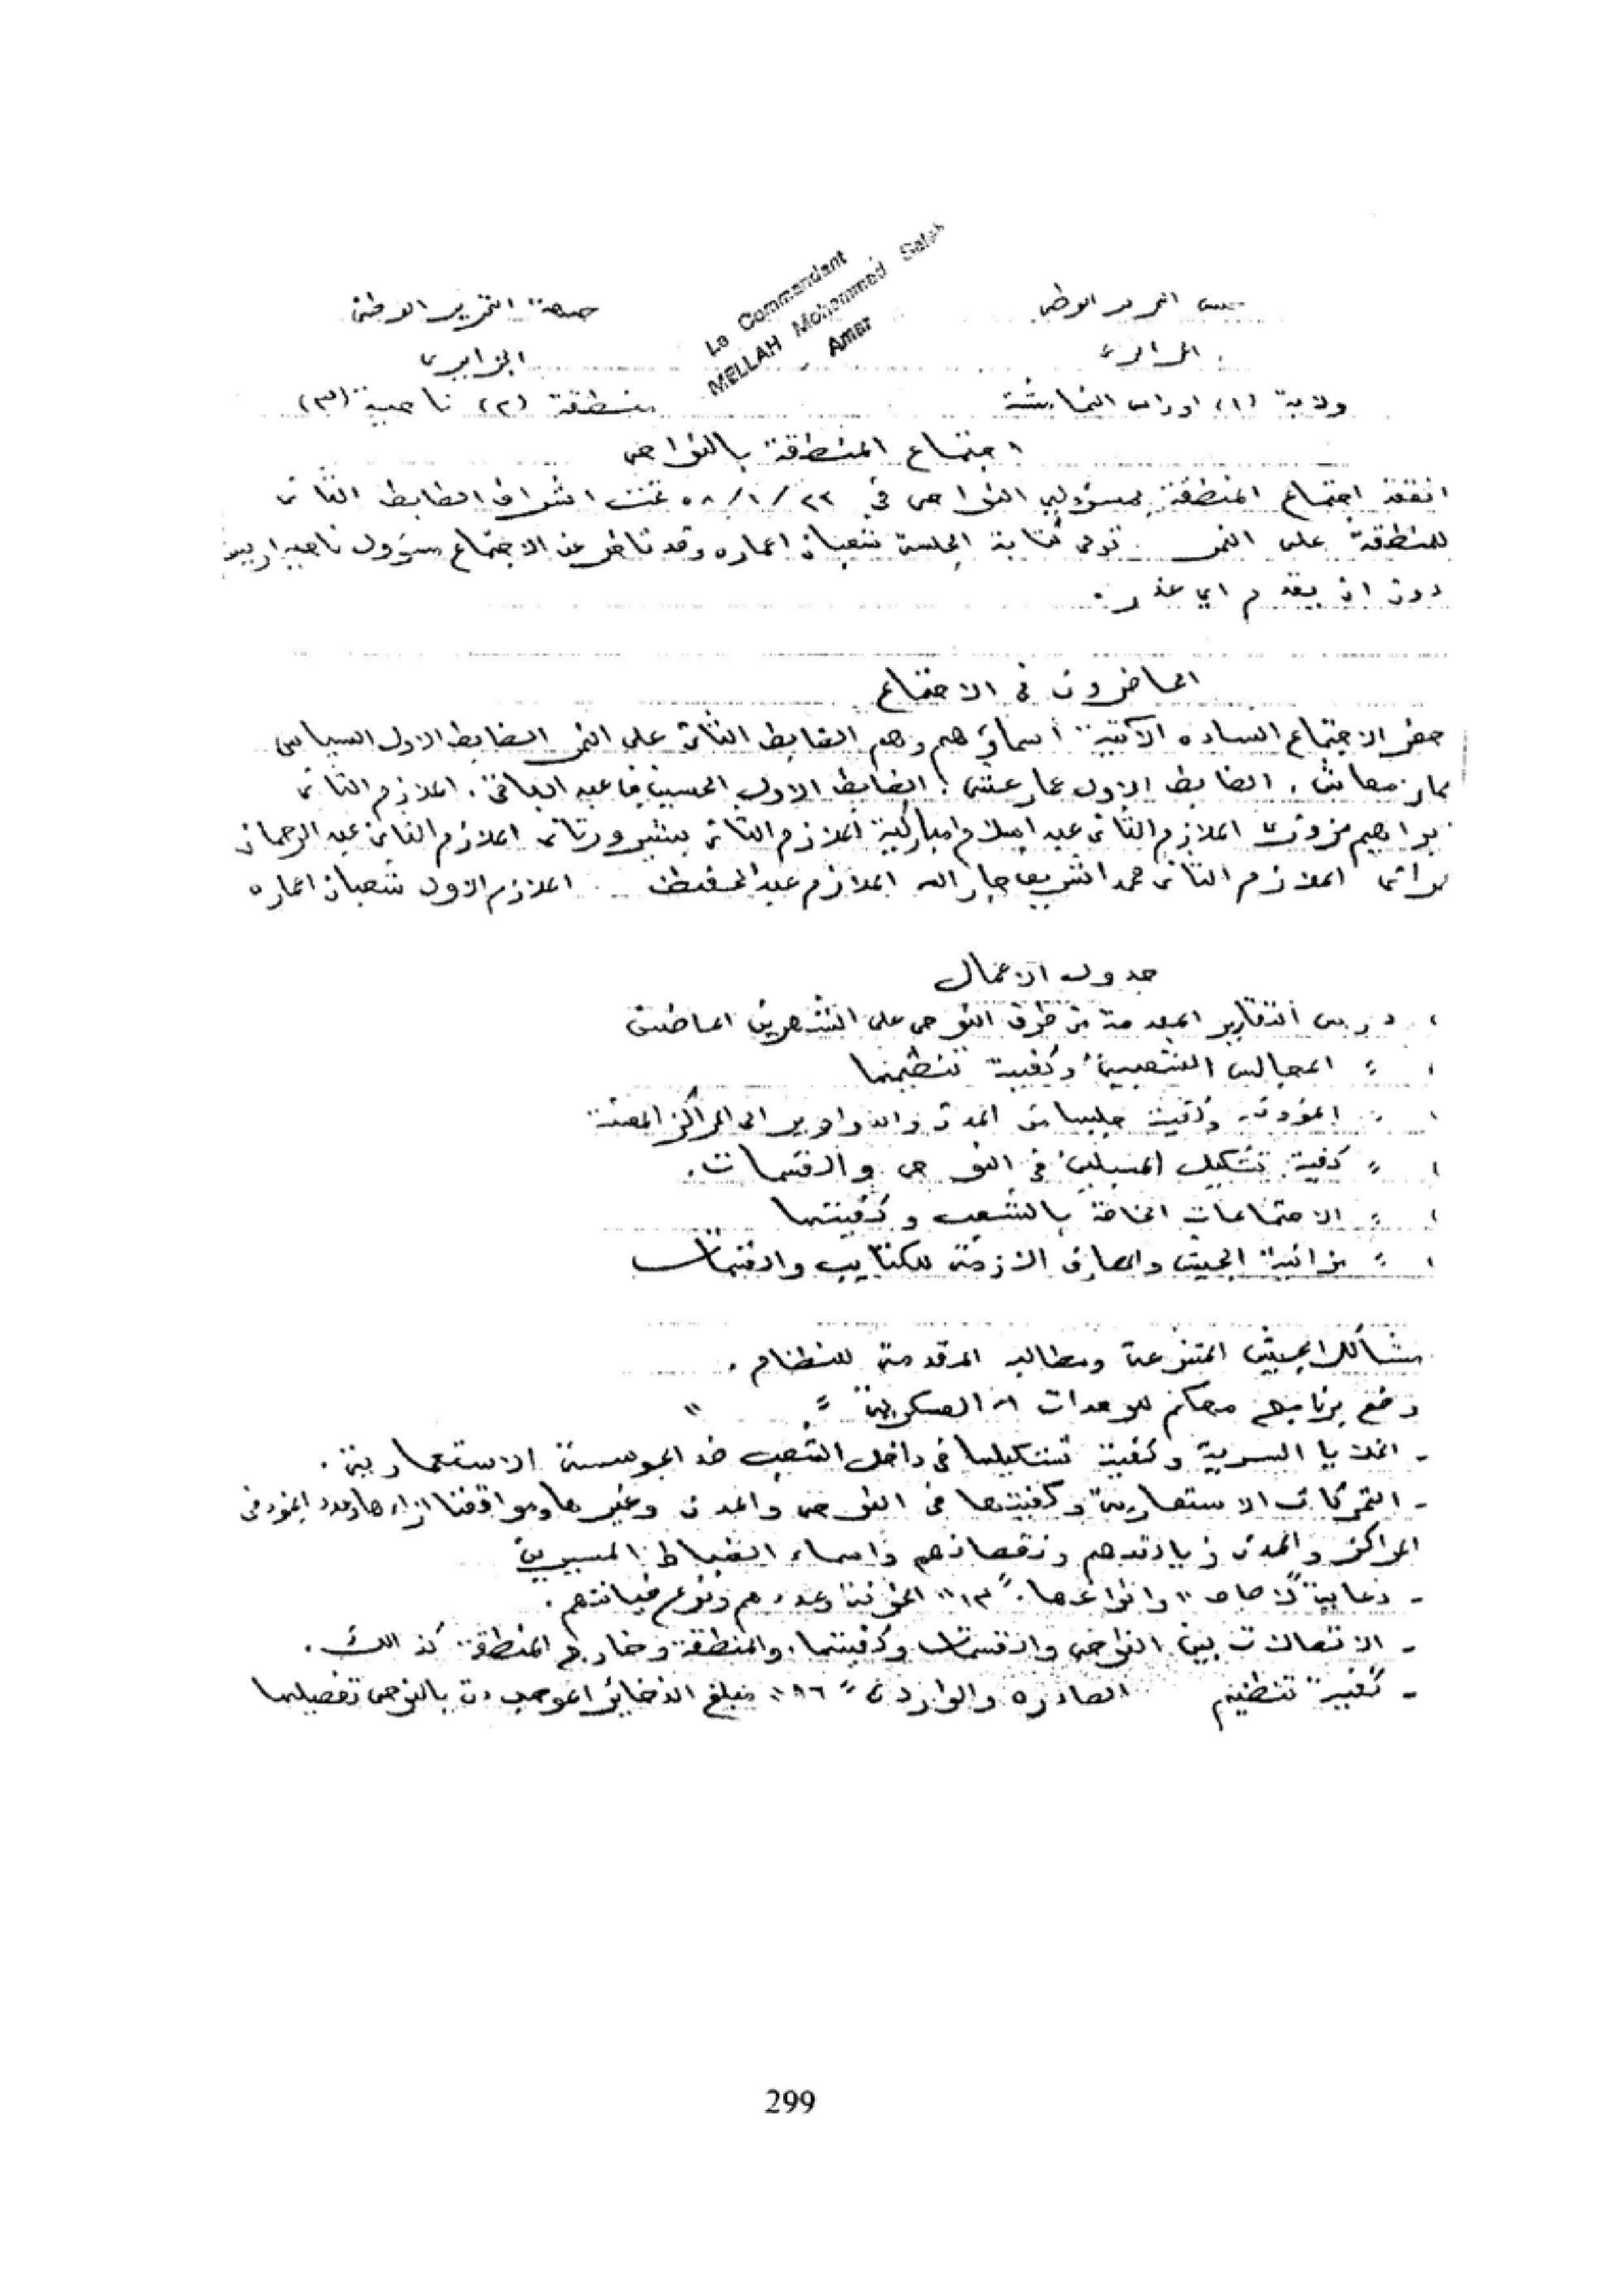 جيش التحرير الوطني
جبهة التحرير الوطني
Le Commandant
MELLAH Mohammed Salah
Amar
الجزائري
الجزايري
ولاية (١) اوراس النمامشة
منطقة (٢) ناحية (٣)
اجتماع المنطقة بالنواحي
انعقد اجتماع المنطقة بمسؤولي النواحي في ٢٢ / ١ / ٥٨ تحت اشراف الظابط الثاني
للمنطقة على النمر تولى كتابة الجلسة شعبان اعماره وقد تاخر عن الاجتماع مسؤول ناحية اريس
دون ان يقدم اي عذر.
الحاضرون في الاجتماع
حضر الاجتماع الساده الآتية اسماؤهم وهم الضابط الثاني علي النمر الضابط الاول السياسي
عمار معاش. الضابط الاول عمار عشي. الضابط الاول الحسين بن عبد الباقي. الملازم الثاني
ابراهيم مزوزي الملازم الثاني عبد السلام امباركية الملازم الثاني بشير ورتاني الملازم الثاني عبد الرحمان
الملازم الثاني محمد الشريف جار الله الملازم عبد الحفيظ الملازم الاول شعبان اعماره
جدول الاعمال
درس التقارير المقدمة من طرف النوحي على الشهرين الماضيين
" المجالس الشعبية وكفيية تنظيمها
" المؤونة وكفية جلبها من المدن والدواوير الى المراكز المعينة
" كفية تشكيل المسبلين في النوحي والاقسمات.
" الاجتماعات الخاصة بالشعب وكفيتها
" مزانية الجيش والمصارف الازمة للكتايب والاقسمات
مشاكل الجيش المتنوعة ومطالبه المقدمة للنظام.
وضع برنامج محكم للوحدات العسكرية "
- الخلايا السرية وكفية تشكيلها في داخل الشعب ضد الجوسسة الاستعمارية.
- التحركات الاستعمارية وكفيتها في النوحي والمدن وغيرها ومواقفنا ازاءها وعدد الجنود في
المراكز والمدن وزيادتهم ونقصانهم واسماء الضباط المسيرين
- دعاية لاصاص وانواعها. "١٣" الخونة وعددهم ونوع خيانتهم.
- الاتصالات بين النواحي والاقسمات وكفيتها. والمنطقة وخارج المنطقة كذالك.
- كفية تنظيم الصادره والوارده "١٦" مبلغ الذخائر الموجودة بالنوحي تفصيلها
299